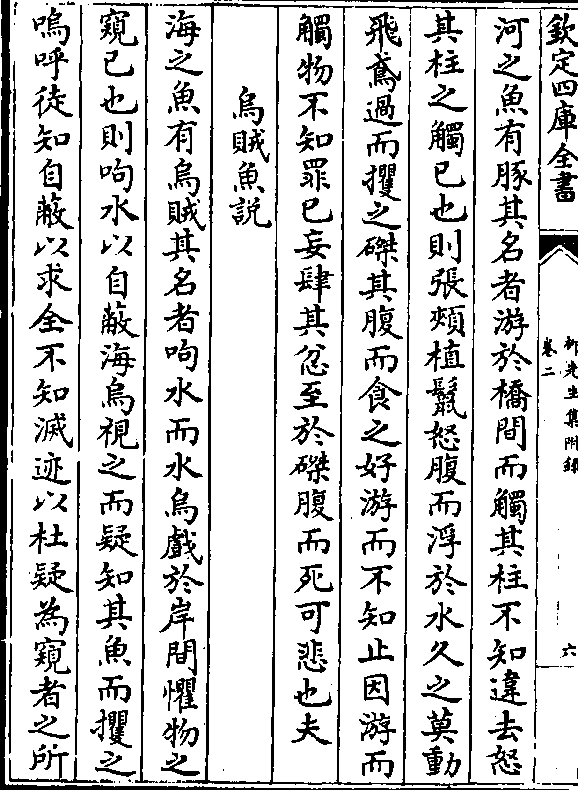 欽定四庫全書
柳先生集附録
卷二
六
河之魚有豚其名者游於橋間而觸其柱不知違去怒
其柱之觸已也則張頰植鬛怒腹而浮於水久之莫動
飛鳶過而攫之磔其腹而食之好游而不知止因游而
觸物不知罪已妄肆其忿至於磔腹而死可悲也夫
烏賊魚説
海之魚有烏賊其名者呴水而水烏戲於岸間懼物之
窺已也則呴水以自蔽海烏視之而疑知其魚而攫之
嗚呼徒知自蔽以求全不知滅迹以杜疑為窺者之所